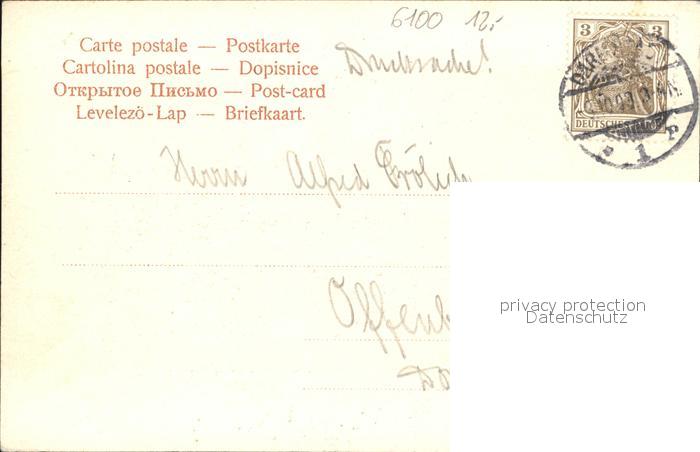 6100 12,-
Carte postale — Postkarte
Cartolina postale — Dopisnice
Открытое Письмо — Post-card
Levelezö-Lap — Briefkaart.
Drucksache!
3 3
DEUTSCHES
1 P
Herrn Alfred
Offenb
privacy protection
Datenschutz